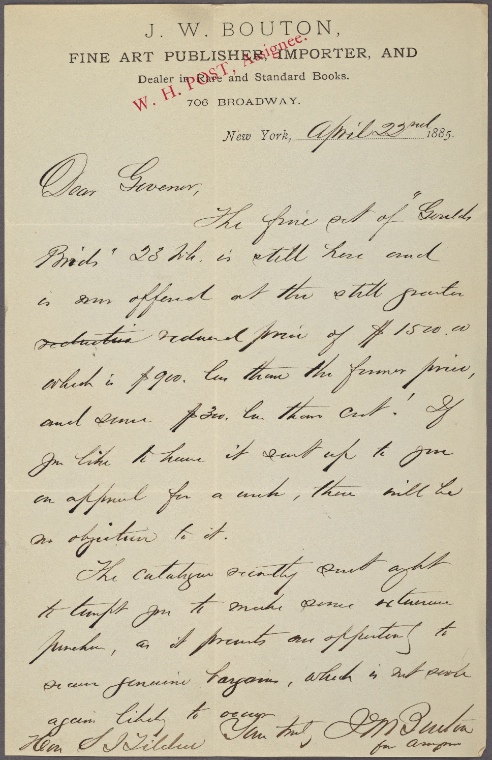 J. W. BOUTON,
FINE ART PUBLISHER, IMPORTER, AND
Dealer in Rare and Standard Books.
W. H. POST, Assignee.
706 BROADWAY.
New York, April 22nd 1885.
Dear Governor,
The fine set of "Goulds
Birds" 23 vols. is still here and
is now offered at the still greater
reduction reduced price of $1500.00
which is $900. less than the former price,
and some $300. less than cost! If
you like to have it sent up to you
on approval for a week, there will be
no objection to it.
The catalogue recently sent ought
to tempt you to make some extensive
purchases, as it presents an opportunity to
secure genuine bargains, which is not soon
again likely to occur
Yours truly J W Bouton
for assignee
Hon S J Tilden